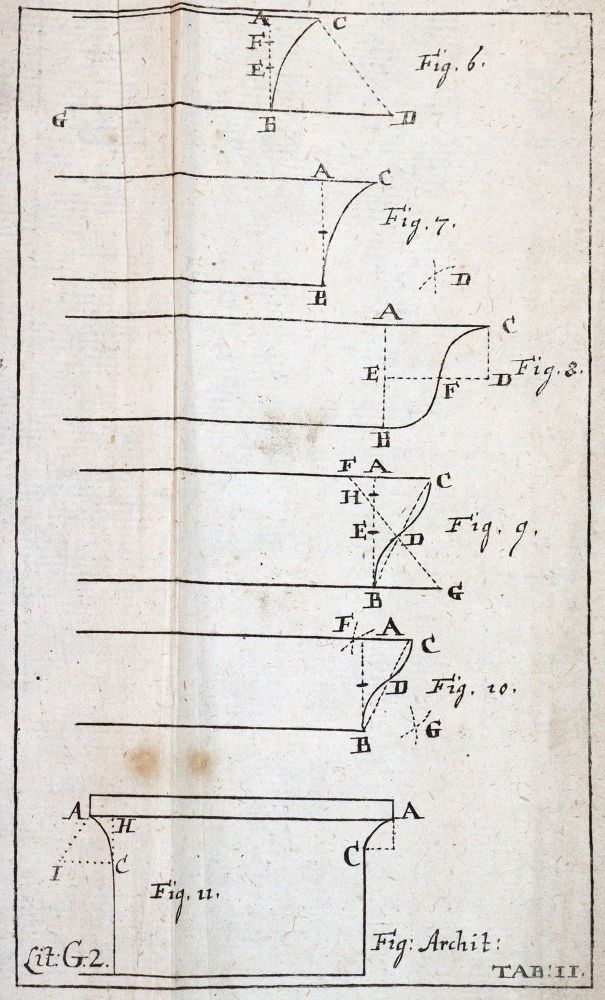 A C
F
E Fig. 6.
G B D
A C
Fig. 7.
B D
A C
E F D Fig. 8.
B
F A C
H
E D Fig. 9.
B G
F A C
D Fig. 10.
B G
A H A
I C C
Fig. 11.
Lit: G. 2. Fig: Archit:
TAB: II.